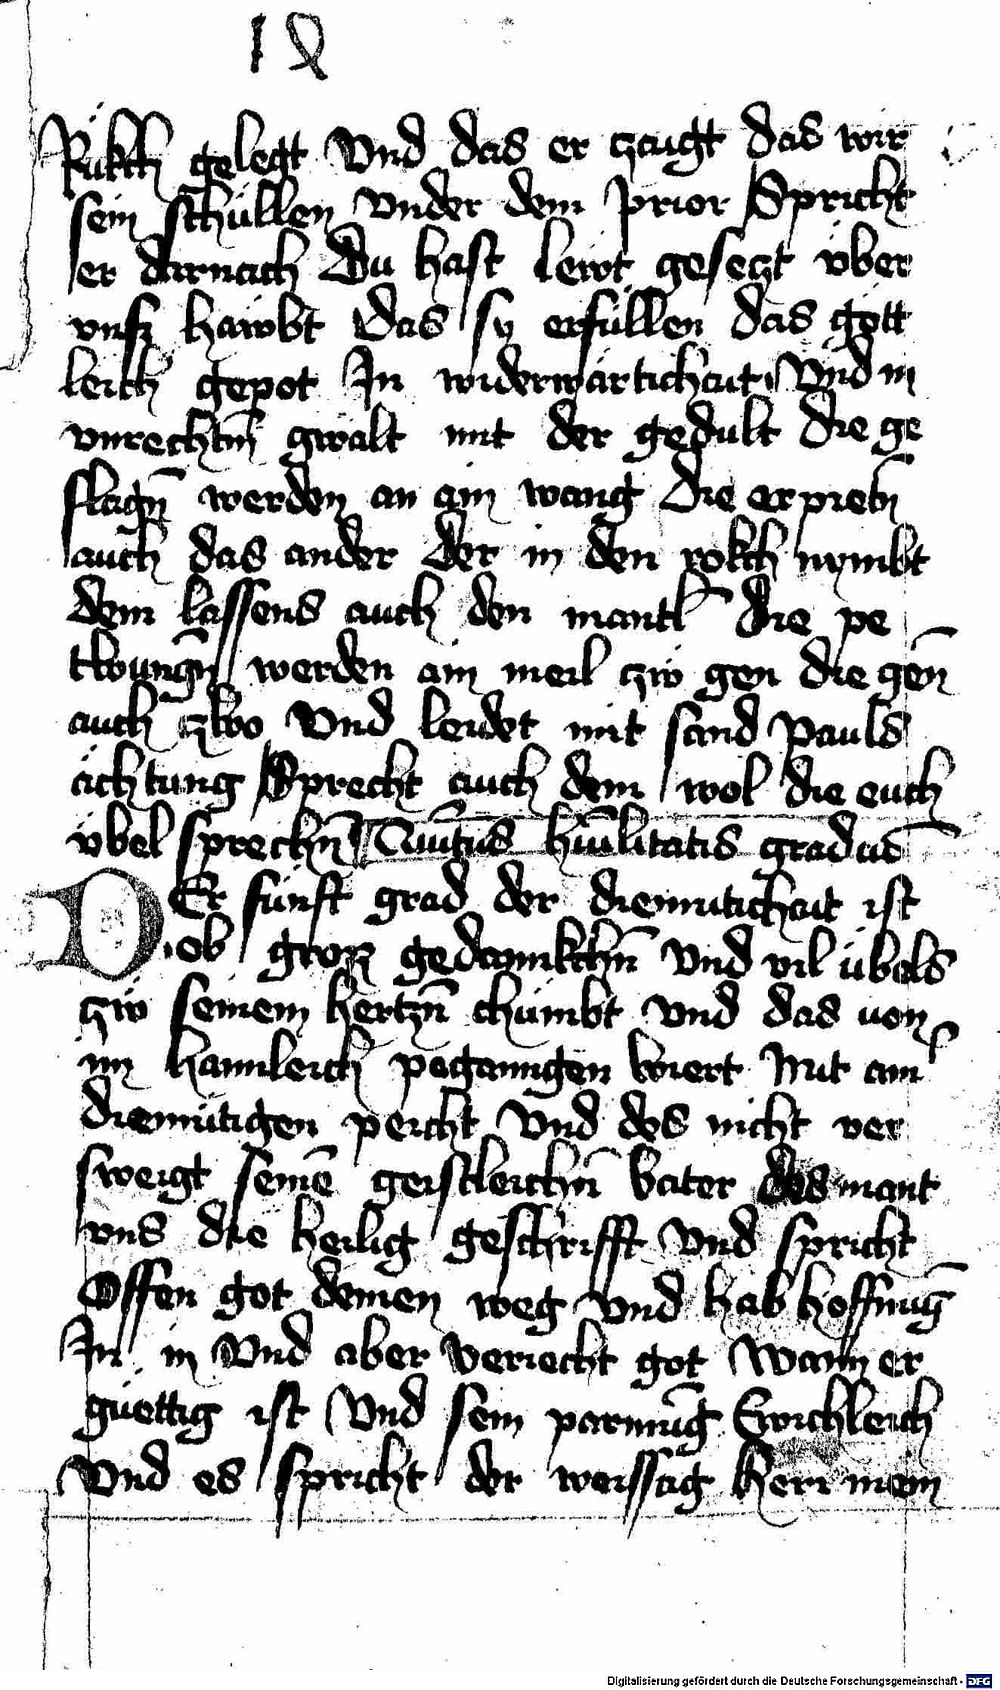 18
Rukch gelegt Vnd das er czaigt das wir
sein schullen vnder dem prior Spricht
er darnach Du hast lewt geseczt vber
vnsr hawbt Das sy erfullen das gött
leich gepot In widerwartichait Vnd in
vnrechtm̄ gwalt mit der gedult Die ge
slagn̄ werden an aim wang Die erpietn̄
auch das ander Der in den rokch nymbt
dem lassens auch den mantl Die pe
twungn̄ werden ain meil czw gen die gēn
auch czwo Vnd leidet mit sand pauls
ächtung Sprecht auch dem wol die euch
vbel sprechn̄ Quītus hūilitatis gradus
DEr funft grad der diemutichait ist
ob gros gedannkchn̄ Vnd vil übels
czw seinem hertzn̄ chumbt Vnd das von
im haimleich pegangen wiert Mit aim
diemutigen peicht Vnd des nicht ver
sweigt seinē geistleichn̄ vater des mant
vns die heilig geschrifft Vnd spricht
Offen got deinen weg Vnd hab hoffnūg
In in Vnd aber veriecht got Wann er
guettig ist Vnd sein parmūg Ewichleich
Vnd es spricht der weissag Herr mein
Digitalisierung gefördert durch die Deutsche Forschungsgemeinschaft - DFG